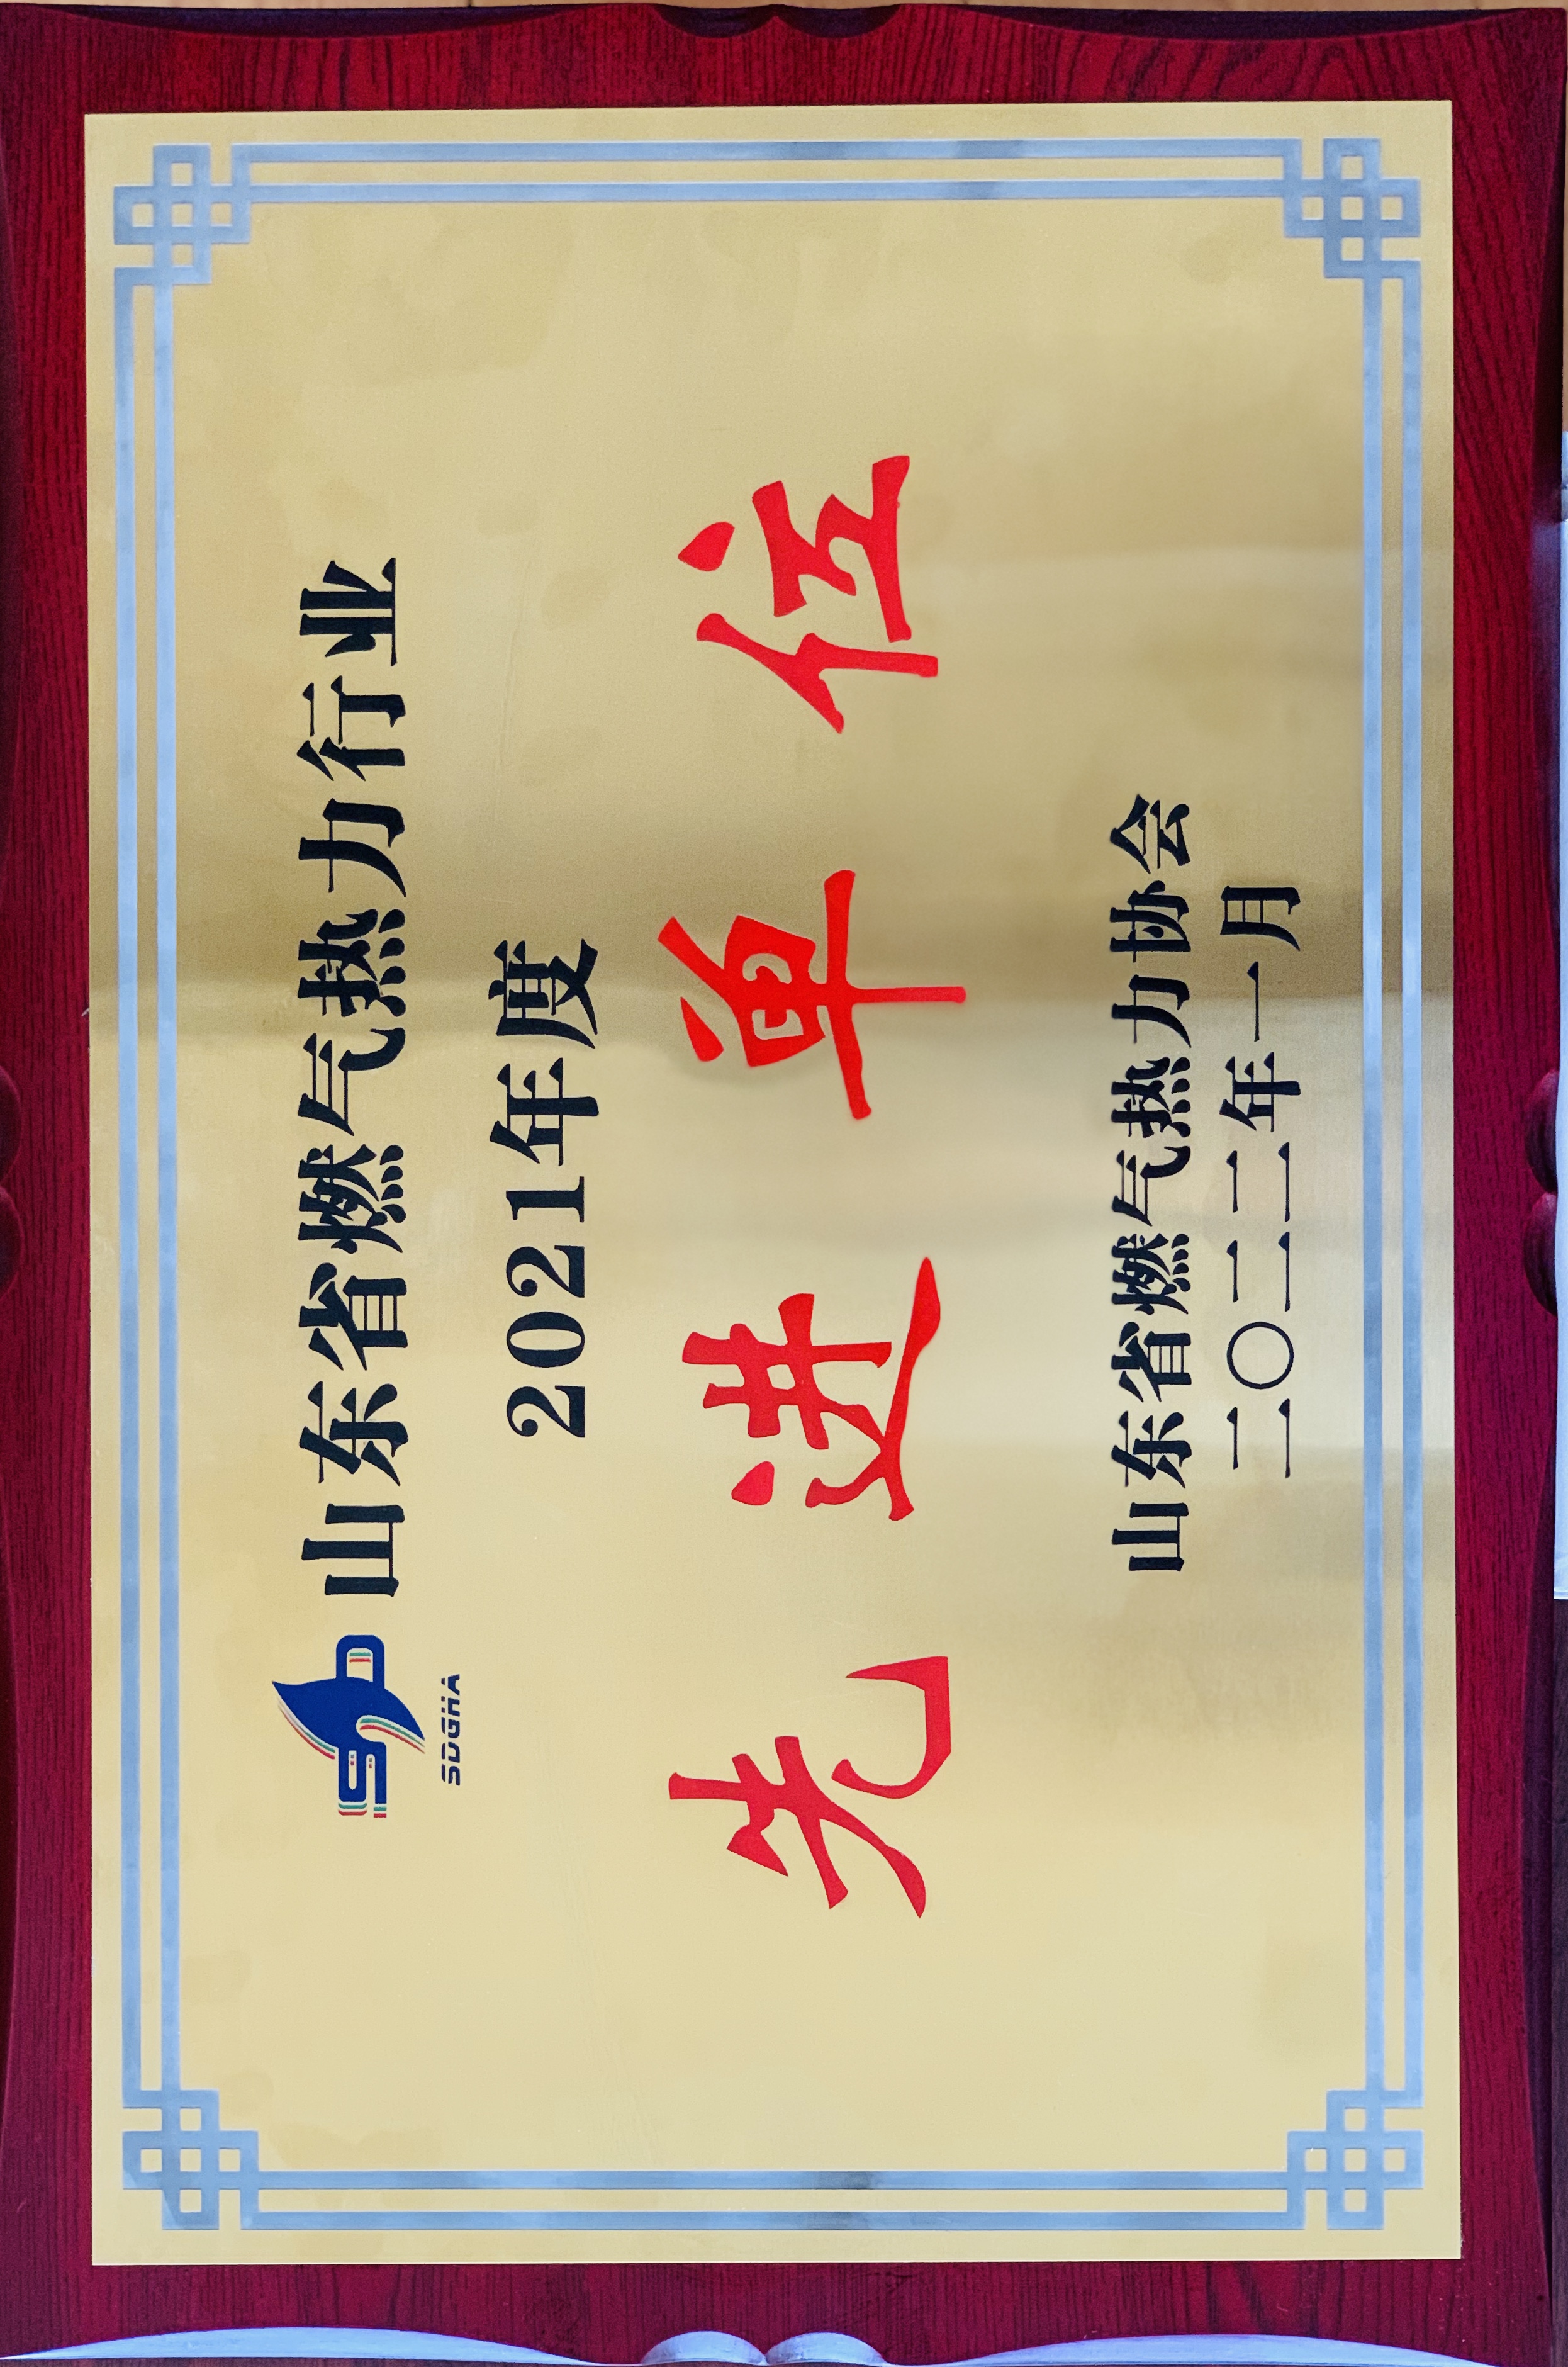 山东省燃气热力行业
SDGHA
2021年度
先进单位
山东省燃气热力协会
二〇二二年一月